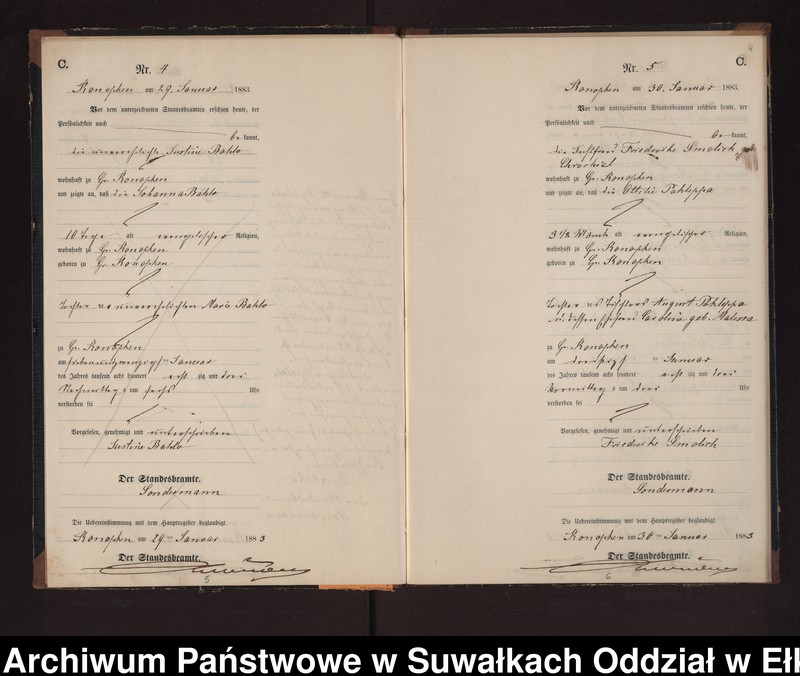 C.
Nr. 4
Konopken am 29. Januar 1883.
Vor dem unterzeichneten Standesbeamten erschien heute, der
Persönlichkeit nach
be kannt,
die unverehelichte Justine Bahlo
wohnhaft zu Gr. Konopken
und zeigte an, daß die Johanna Bahlo
10 Tage alt evangelischer Religion,
wohnhaft zu Gr. Konopken
geboren zu Gr. Konopken
Tochter der unverehelichten Marie Bahlo
zu Gr. Konopken
am siebenundzwanzigsten Januar
des Jahres tausend acht hundert acht zig und drei
Nachmittags um sechs Uhr
verstorben sei
Vorgelesen, genehmigt und unterschrieben
Justine Bahlo
Der Standesbeamte.
Sondermann
Die Uebereinstimmung mit dem Hauptregister beglaubigt.
Konopken am 29ten Januar 1883
Der Standesbeamte.
5
4
C.
Nr. 5
Konopken am 30. Januar 1883
Vor dem unterzeichneten Standesbeamten erschien heute, der
Persönlichkeit nach
be kannt,
die Friederike Smolich geb.
wohnhaft zu Gr. Konopken
und zeigte an, daß die Ottilie Pahleppa
3 1/2 Monate alt evangelischer Religion,
wohnhaft zu Gr. Konopken
geboren zu Gr. Konopken
Tochter des Tischlers August Pahleppa
u. dessen Ehefrau Caroline geb.
zu Gr. Konopken
am dreißigsten Januar
des Jahres tausend acht hundert acht zig und drei
Vormittags um drei Uhr
verstorben sei
Vorgelesen, genehmigt und unterschrieben
Friederike Smolich
Der Standesbeamte.
Sondermann
Die Uebereinstimmung mit dem Hauptregister beglaubigt.
Konopken am 30ten Januar 1883
Der Standesbeamte.
6
Archiwum Państwowe w Suwałkach Oddział w Ełk